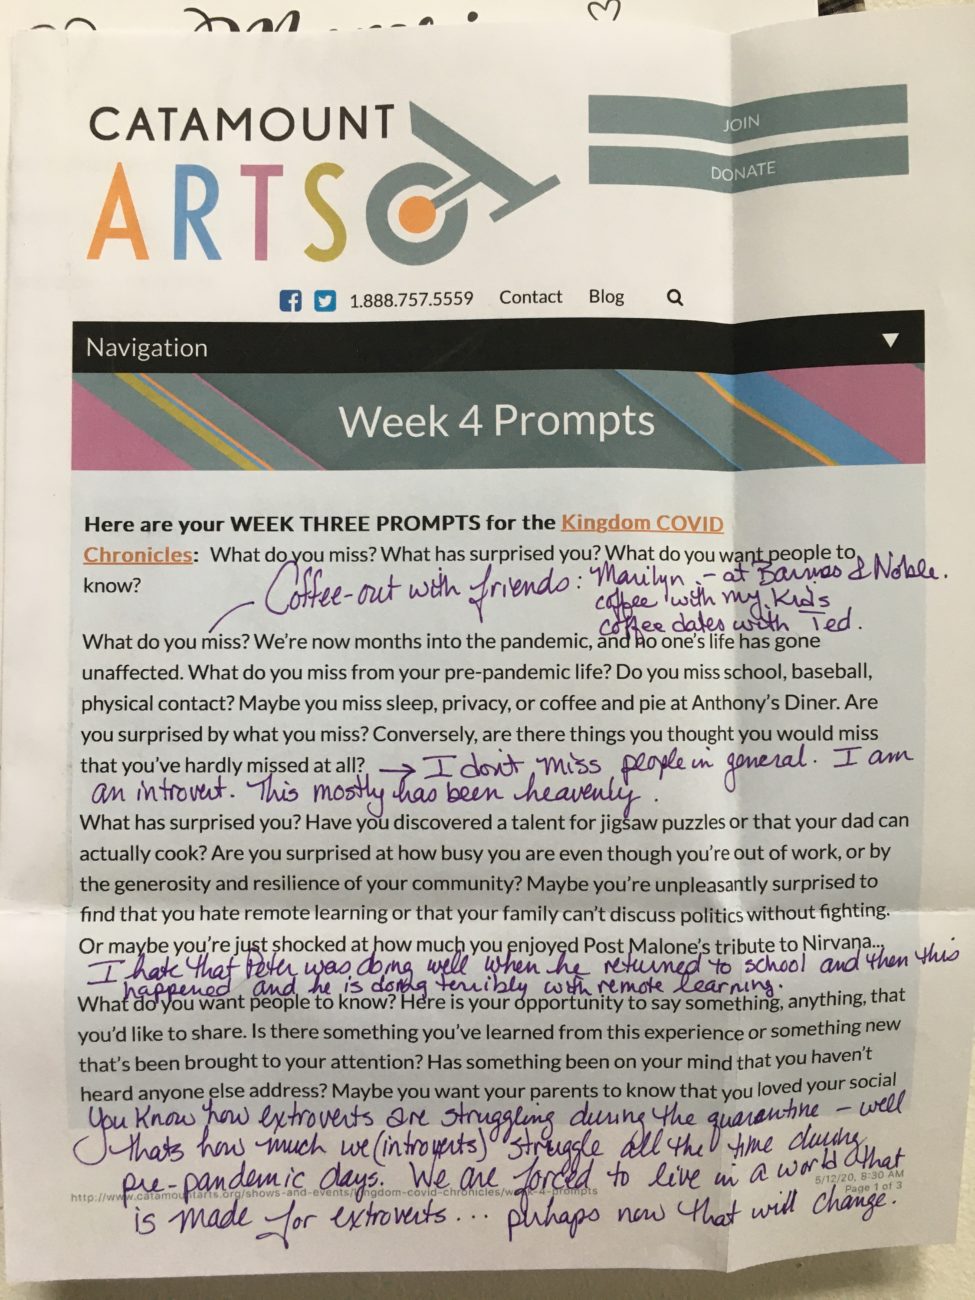 CATAMOUNT
ARTS
JOIN
DONATE
1.888.757.5559 Contact Blog
Navigation
Week 4 Prompts
Here are your WEEK THREE PROMPTS for the Kingdom COVID
Chronicles: What do you miss? What has surprised you? What do you want people to
know?
Coffee-out with friends: Marilyn - at Barnes & Noble.
coffee with my kids
coffee dates with Ted.
What do you miss? We're now months into the pandemic, and no one's life has gone
unaffected. What do you miss from your pre-pandemic life? Do you miss school, baseball,
physical contact? Maybe you miss sleep, privacy, or coffee and pie at Anthony's Diner. Are
you surprised by what you miss? Conversely, are there things you thought you would miss
that you've hardly missed at all? → I don't miss people in general. I am
an introvert. This mostly has been heavenly.
What has surprised you? Have you discovered a talent for jigsaw puzzles or that your dad can
actually cook? Are you surprised at how busy you are even though you're out of work, or by
the generosity and resilience of your community? Maybe you're unpleasantly surprised to
find that you hate remote learning or that your family can't discuss politics without fighting.
Or maybe you're just shocked at how much you enjoyed Post Malone's tribute to Nirvana...
I hate that Peter was doing well when he returned to school and then this
happened and he is doing terribly with remote learning.
What do you want people to know? Here is your opportunity to say something, anything, that
you'd like to share. Is there something you've learned from this experience or something new
that's been brought to your attention? Has something been on your mind that you haven't
heard anyone else address? Maybe you want your parents to know that you loved your social
You know how extroverts are struggling during the quarantine - well
thats how much we (introverts) struggle all the time during
pre-pandemic days. We are forced to live in a world that
is made for extroverts... perhaps now that will change.
http://www.catamountarts.org/shows-and-events/kingdom-covid-chronicles/week-4-prompts
5/12/20, 8:30 AM
Page 1 of 3